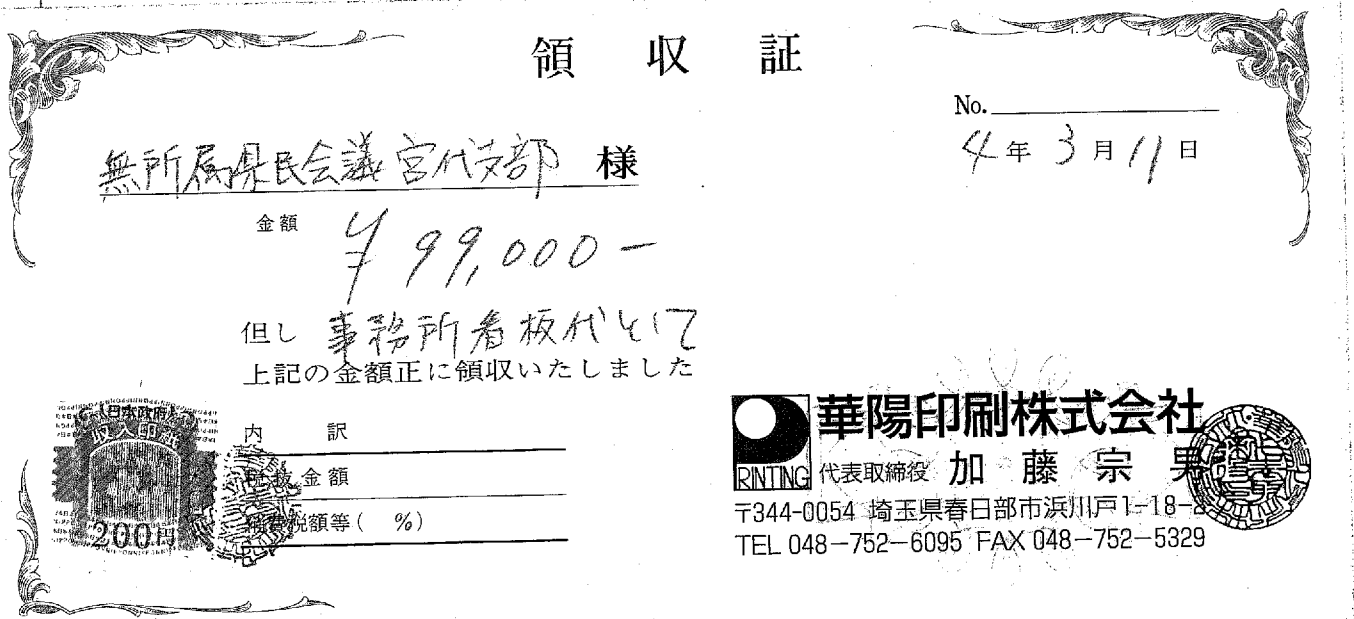 領収証
No.
4年3月11日
無所属県民会議宮代支部 様
金額 ¥99,000-
但し 事務所看板代として
上記の金額正に領収いたしました
日本政府
収入印紙
200円
内訳
税抜金額
消費税額等( %)
PRINTING
華陽印刷株式会社
代表取締役 加藤宗男
〒344-0054 埼玉県春日部市浜川戸1-18-
TEL 048-752-6095 FAX 048-752-5329